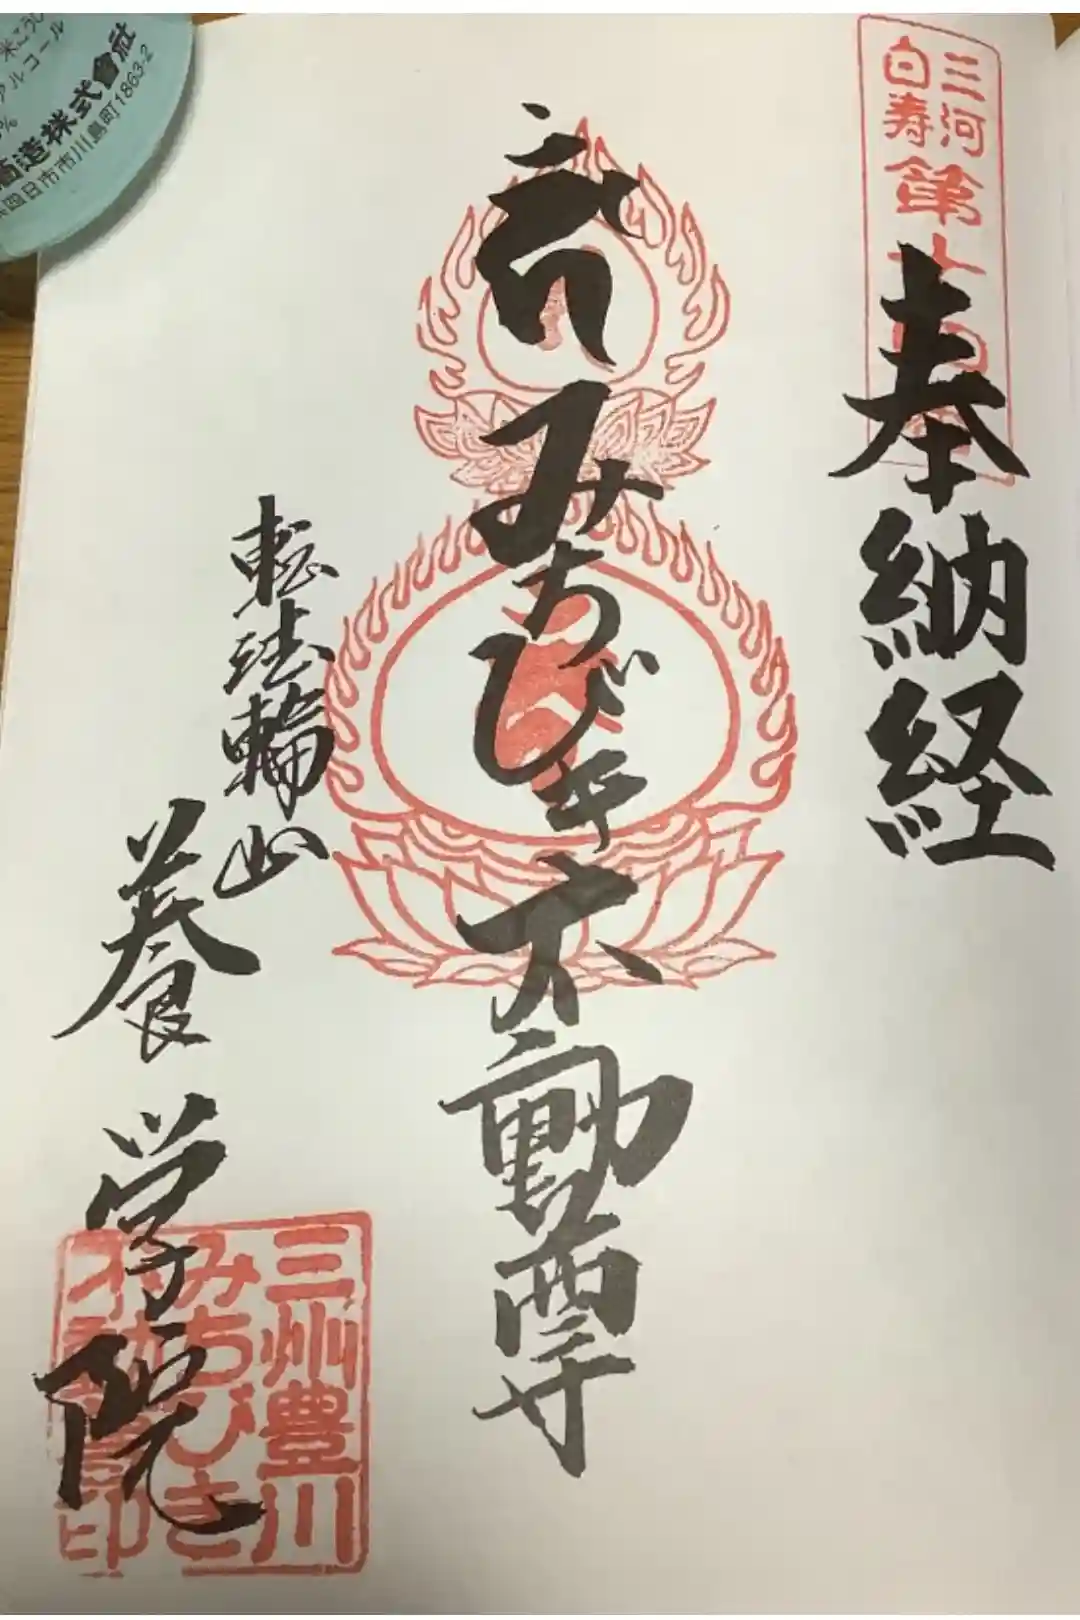 三河
白寿
第十四番
奉納経
みちびき不動尊
転法輪山
養学院
三州豊川
みちびき
不動尊印
米こうじ
アルコール
酒造株式會社
四日市市川島町1863-2